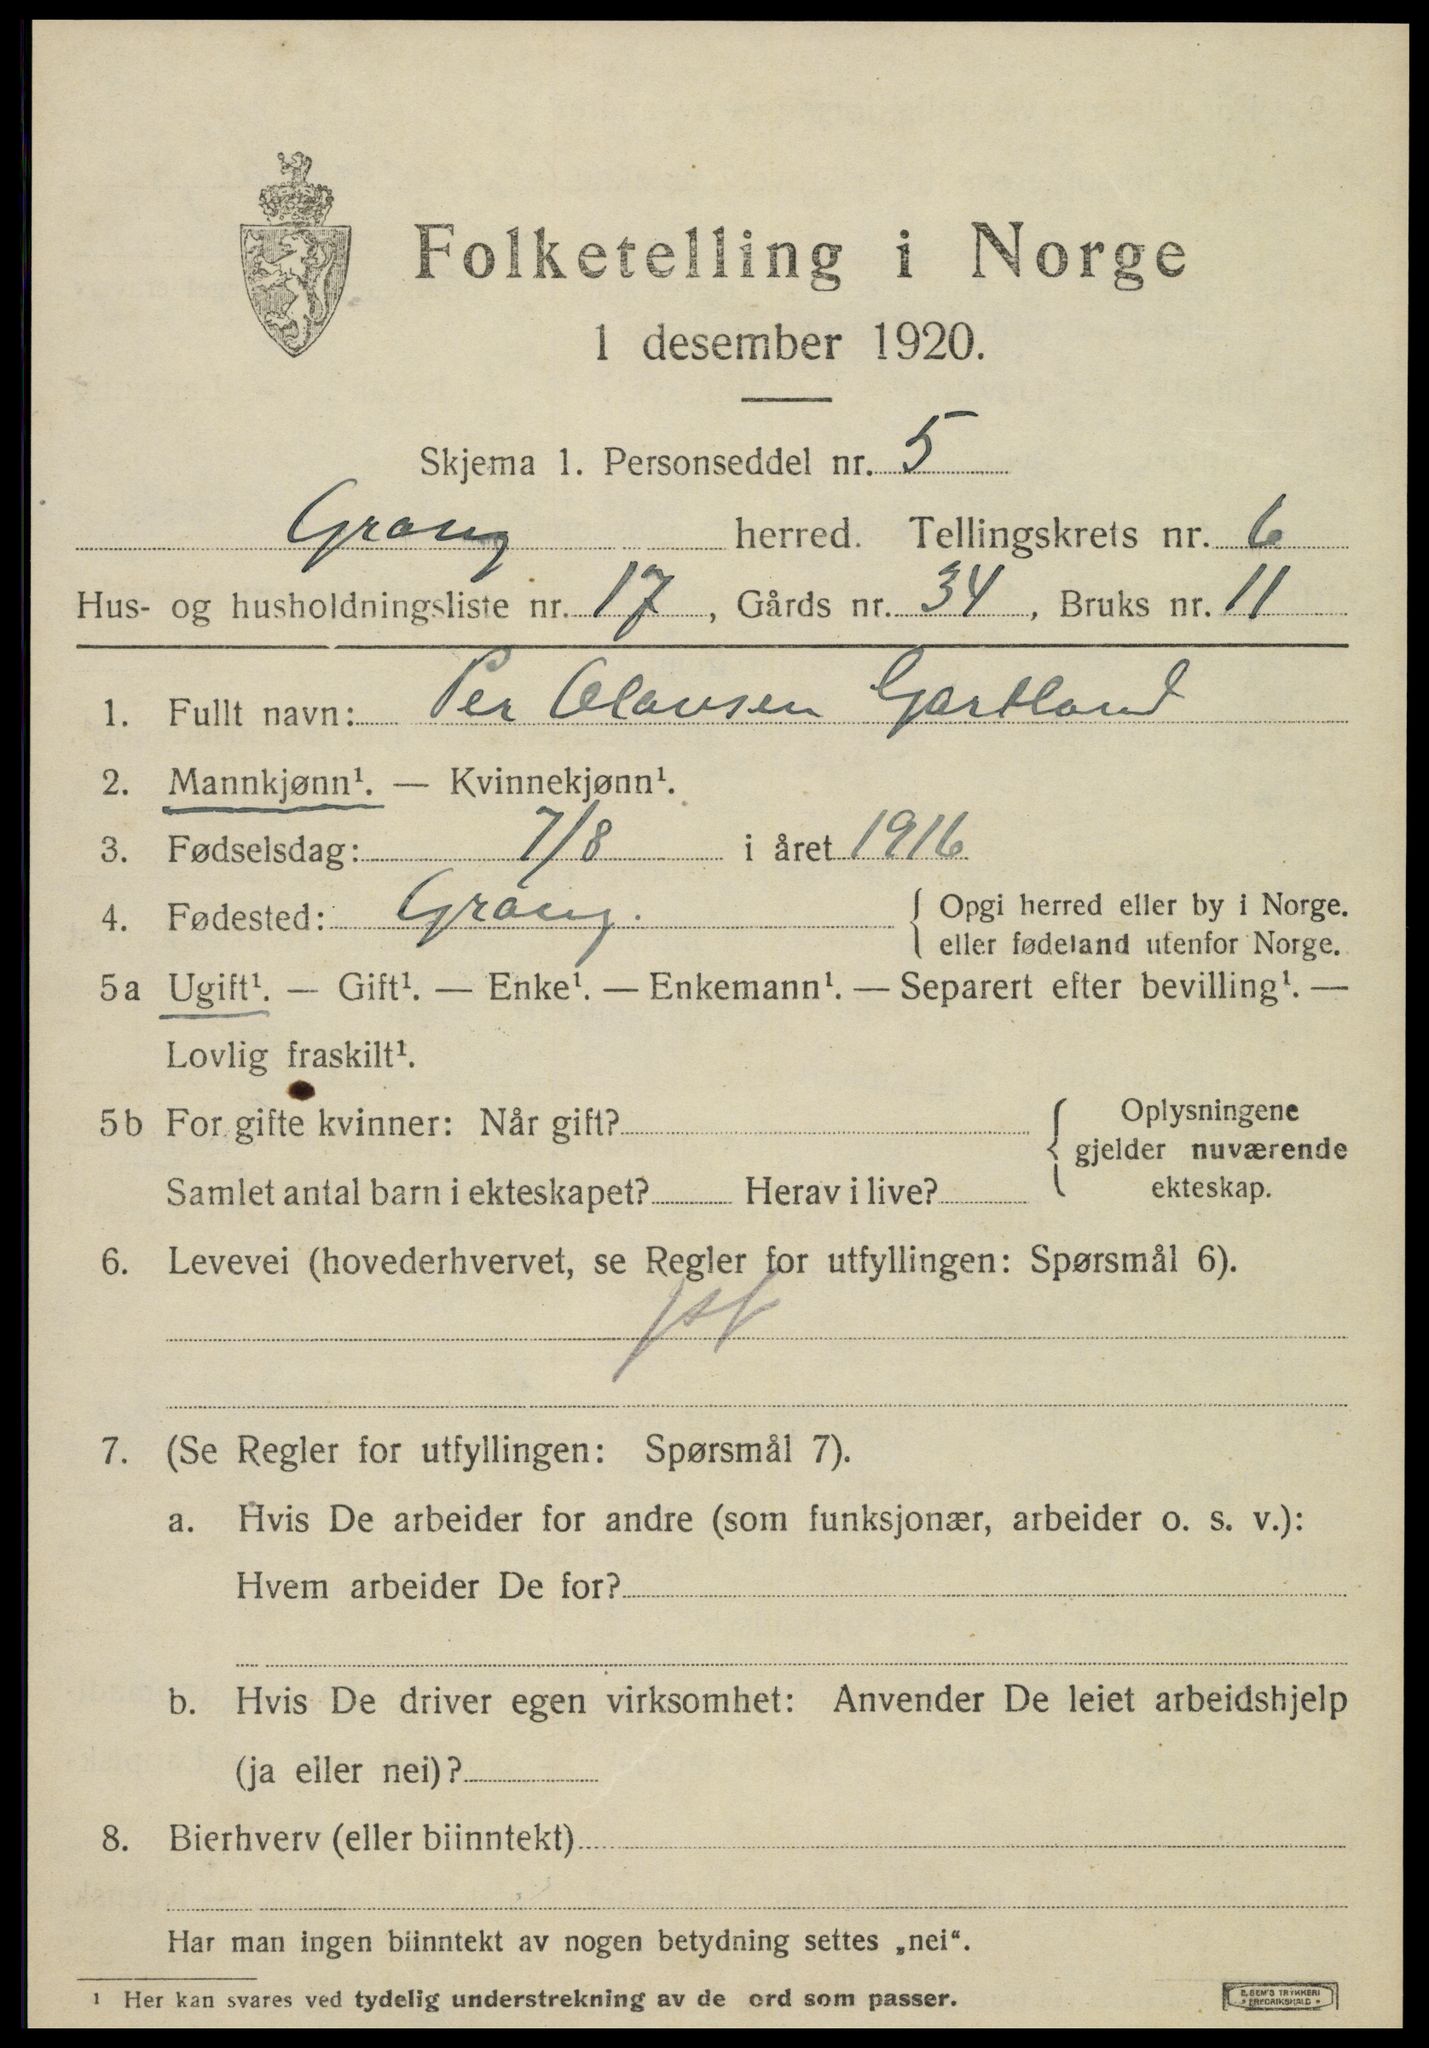 Folketelling i Norge
1 desember 1920.
Skjema 1. Personseddel nr. 5
Grong herred. Tellingskrets nr. 6
Hus- og husholdningsliste nr. 17, Gårds nr. 34, Bruks nr. 11
1. Fullt navn: Per Olausen Gartland
2. Mannkjønn¹. — Kvinnekjønn¹.
3. Fødselsdag: 7/8 i året 1916
4. Fødested: Grong. { Opgi herred eller by i Norge.
eller fødeland utenfor Norge.
5a Ugift¹. — Gift¹. — Enke¹. — Enkemann¹. — Separert efter bevilling¹. —
Lovlig fraskilt¹.
5b For gifte kvinner: Når gift? { Oplysningene
gjelder nuværende
Samlet antal barn i ekteskapet? Herav i live? ekteskap.
6. Levevei (hovederhvervet, se Regler for utfyllingen: Spørsmål 6).
7. (Se Regler for utfyllingen: Spørsmål 7).
a. Hvis De arbeider for andre (som funksjonær, arbeider o. s. v.):
Hvem arbeider De for?
b. Hvis De driver egen virksomhet: Anvender De leiet arbeidshjelp
(ja eller nei)?
8. Bierhverv (eller biinntekt)
Har man ingen biinntekt av nogen betydning settes „nei“.
¹ Her kan svares ved tydelig understrekning av de ord som passer.
E. SEM'S TRYKKERI
• FREDRIKSHALD •